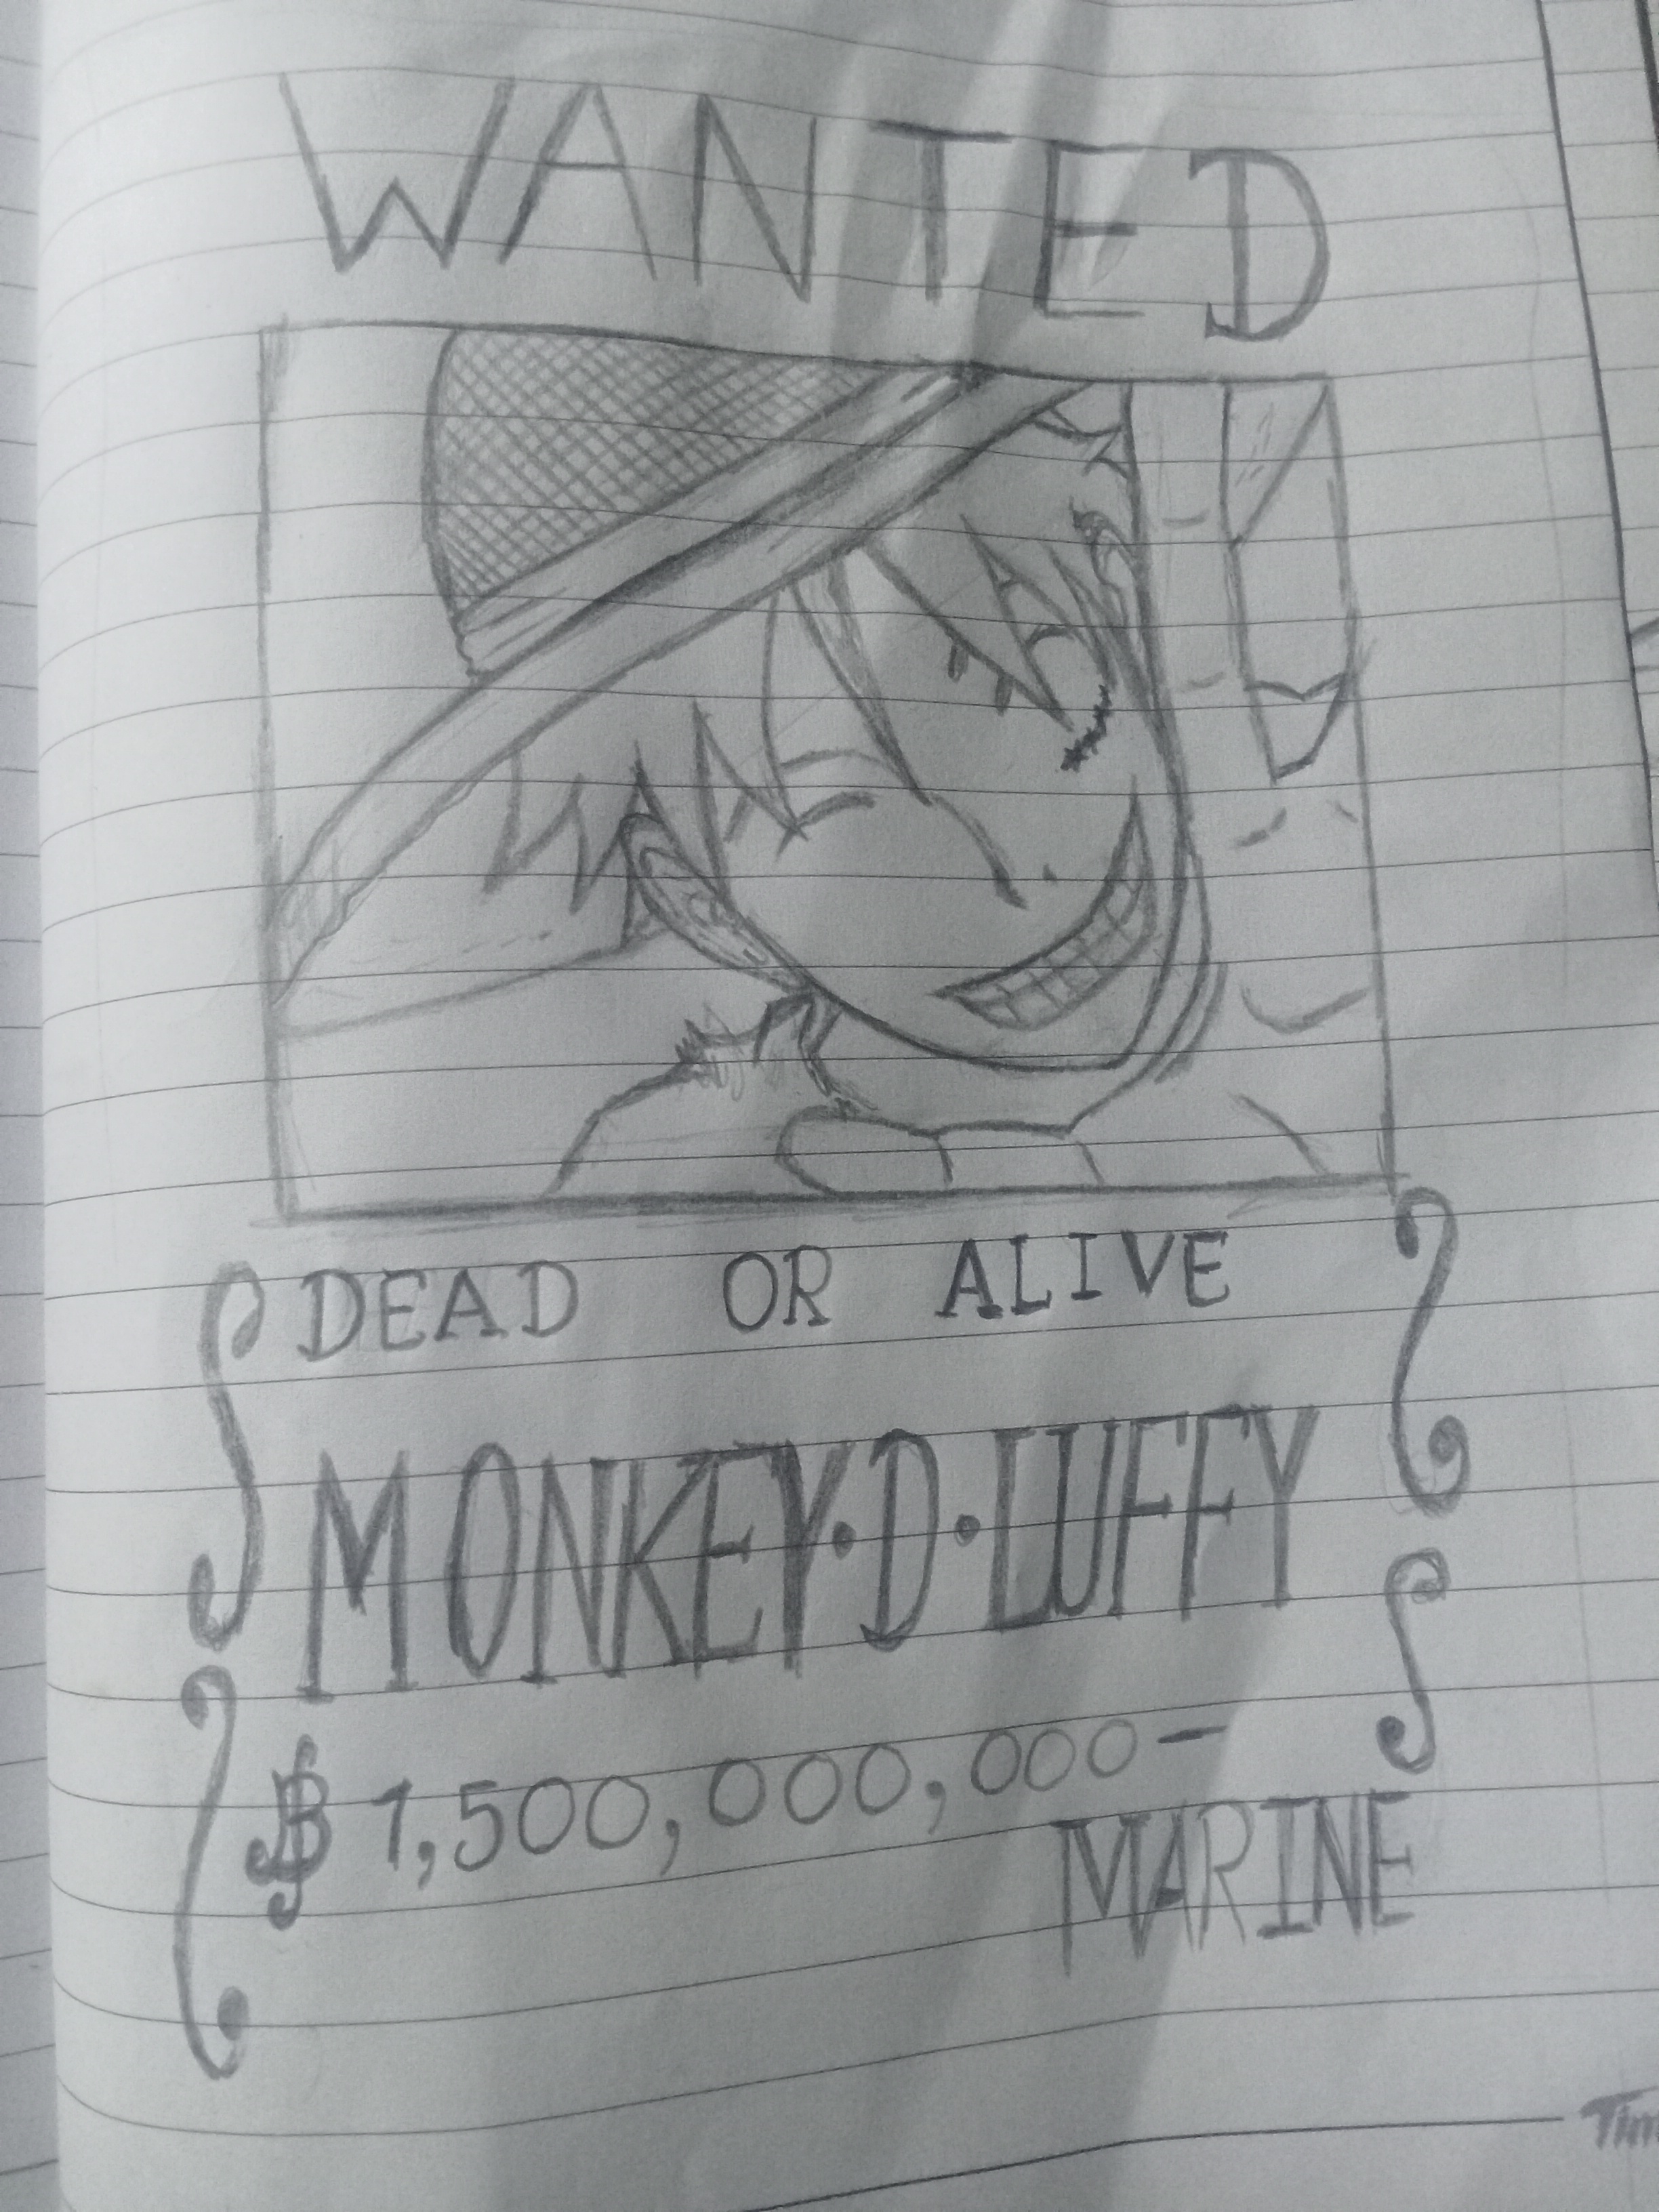 WANTED
DEAD OR ALIVE
MONKEY·D·LUFFY
฿ 1,500,000,000-
MARINE